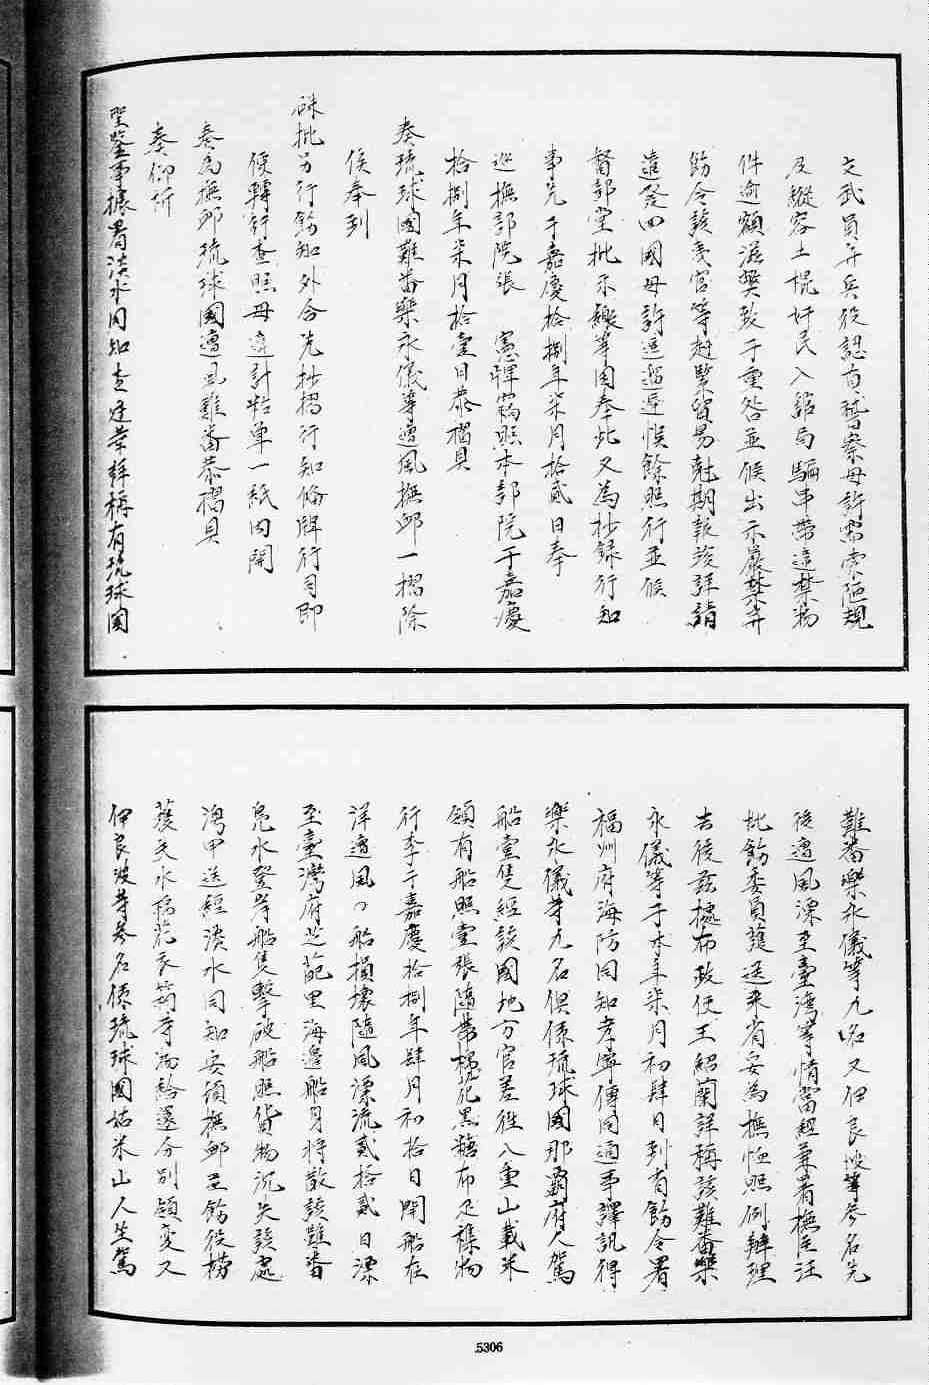 文武員弁兵役認真稽察毋許需索陋規
及縱容土棍奸民入館局騙串帶違禁物
件逾額滋獘致于重咎並候出示嚴禁并
飭令該夷官等赶緊貿易尅期報竣詳請
遣發回國毋許逗遛遲悞餘照行並候
督部堂批示繳等因奉此又為抄錄行知
事先于嘉慶拾捌年柒月拾貳日奉
巡撫部院張 憲牌爲照本部院于嘉慶
拾捌年柒月拾壹日恭摺具
奏琉球國難番樂永儀等遭風撫卹一摺除
俟奉到
硃批另行飭知外合先抄摺行知俻牌行司即
便轉行查照毋違計粘單一紙內開
奏為撫卹琉球國遭風難番恭摺具
奏仰祈
聖鑒事據署淡水同知 詳稱有琉球國
難番樂永儀等九名又伊良波等參名先
後遭風漂至臺灣等情當經兼署撫臣汪
批飭委員護送來省妥為撫恤照例辦理
去後茲據布政使王紹蘭詳稱該難番樂
永儀等于本年柒月初肆日到省飭令署
福州府海防同知李寧傳同通事譯訊得
樂永儀等九名俱係琉球國那霸府人駕
船壹隻經該國地方官差徃八重山載米
領有船照壹張隨帶棉花黑糖布疋雜物
行李于嘉慶拾捌年肆月初拾日開船在
洋遭風船損壞隨風漂流貳拾貳日漂
至臺灣府芝葩里海邊船身將散該難番
鳧水登岸船隻擊破船照貨物沉失該處
灣甲送經淡水同知安頓撫卹並飭役撈
獲失水棉花衣箱等物給還分別領變又
伊良波等參名係琉球國姑米山人坐駕
5306